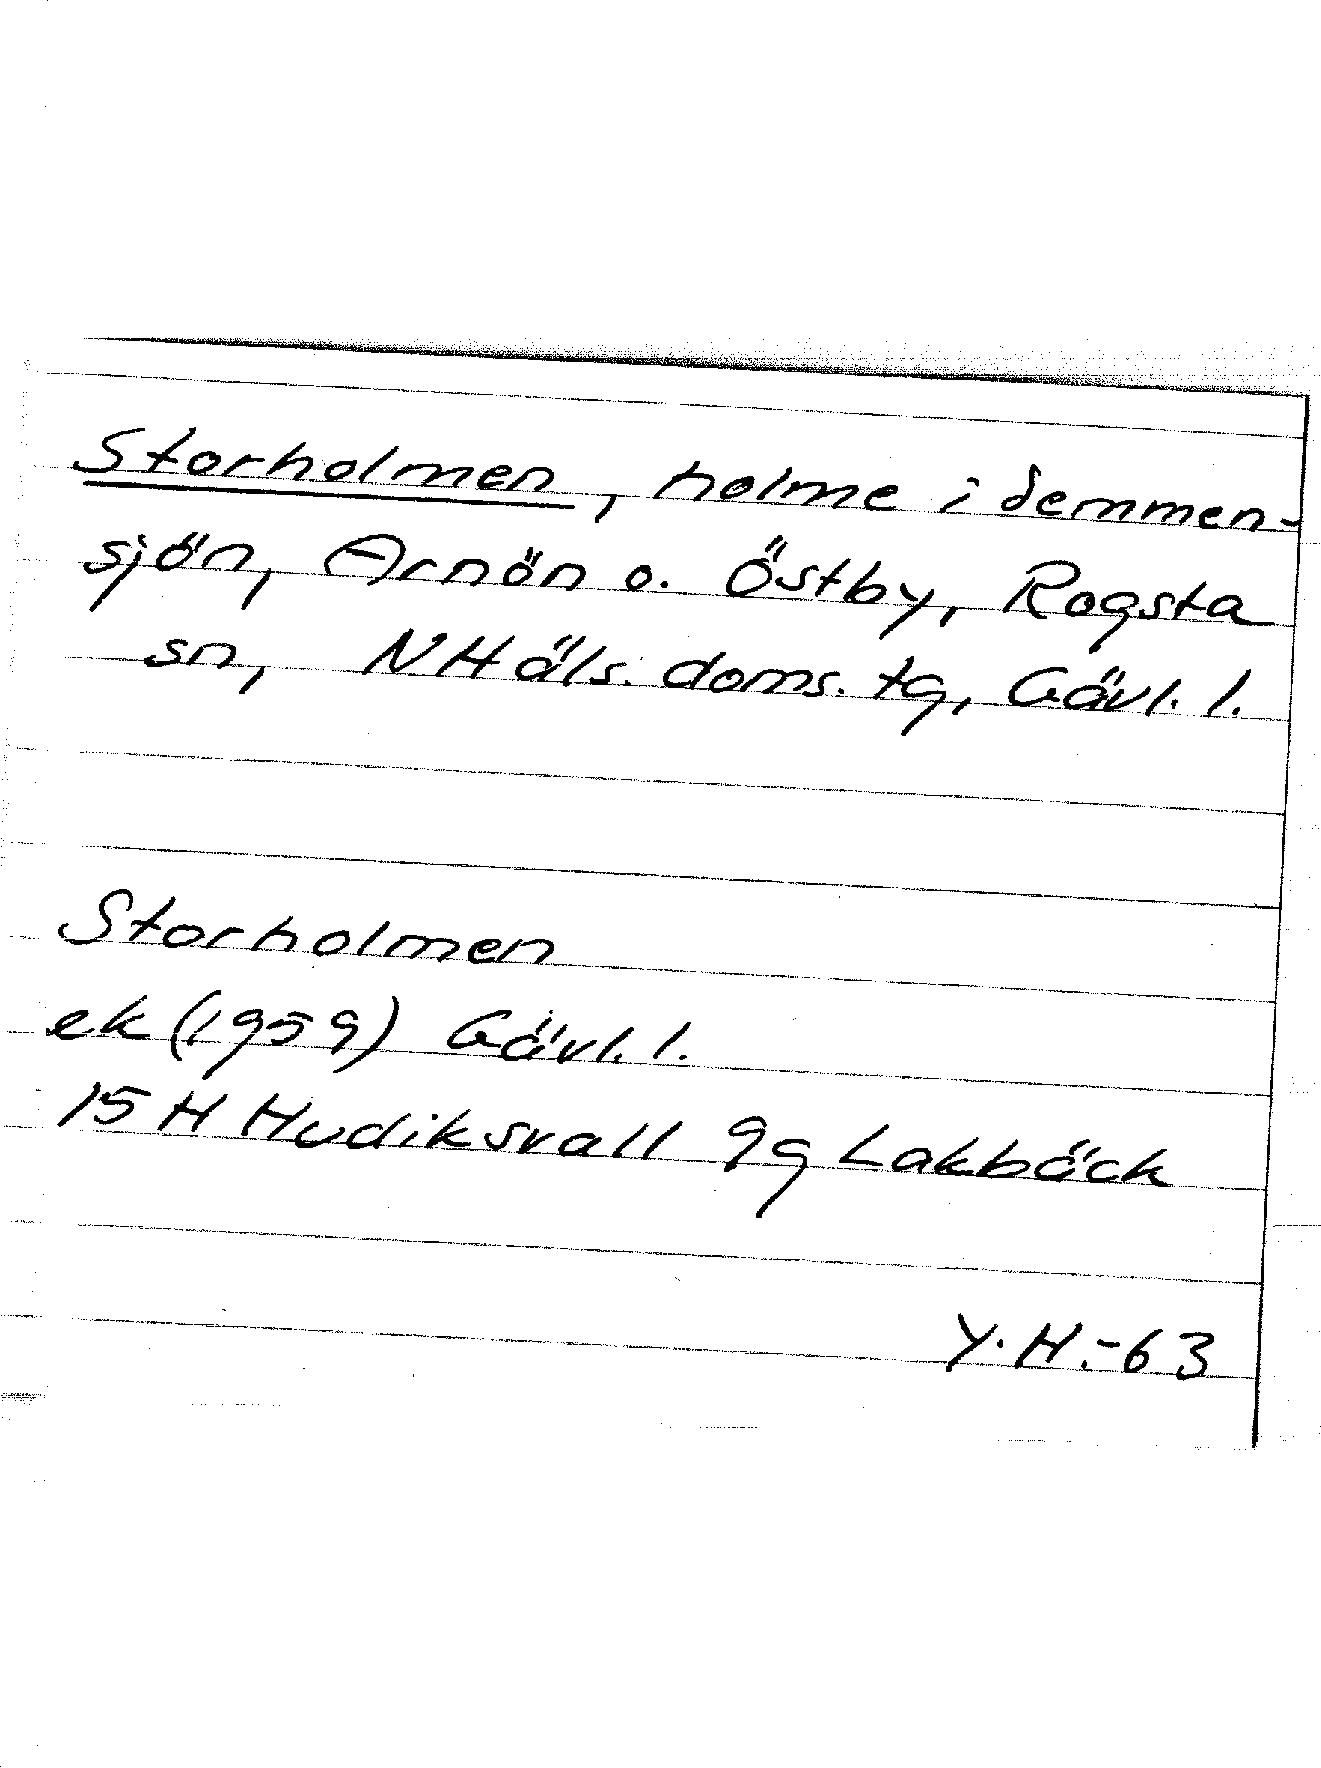 Storholmen, holme i demmen-
sjön, Arnön o. Östby, Rogsta
sn, NHäls. doms. tg, Gävl. l.
Storholmen
ek (1959) Gävl. l.
15 H Hudiksvall 9g Lakbäck
Y. H. -63